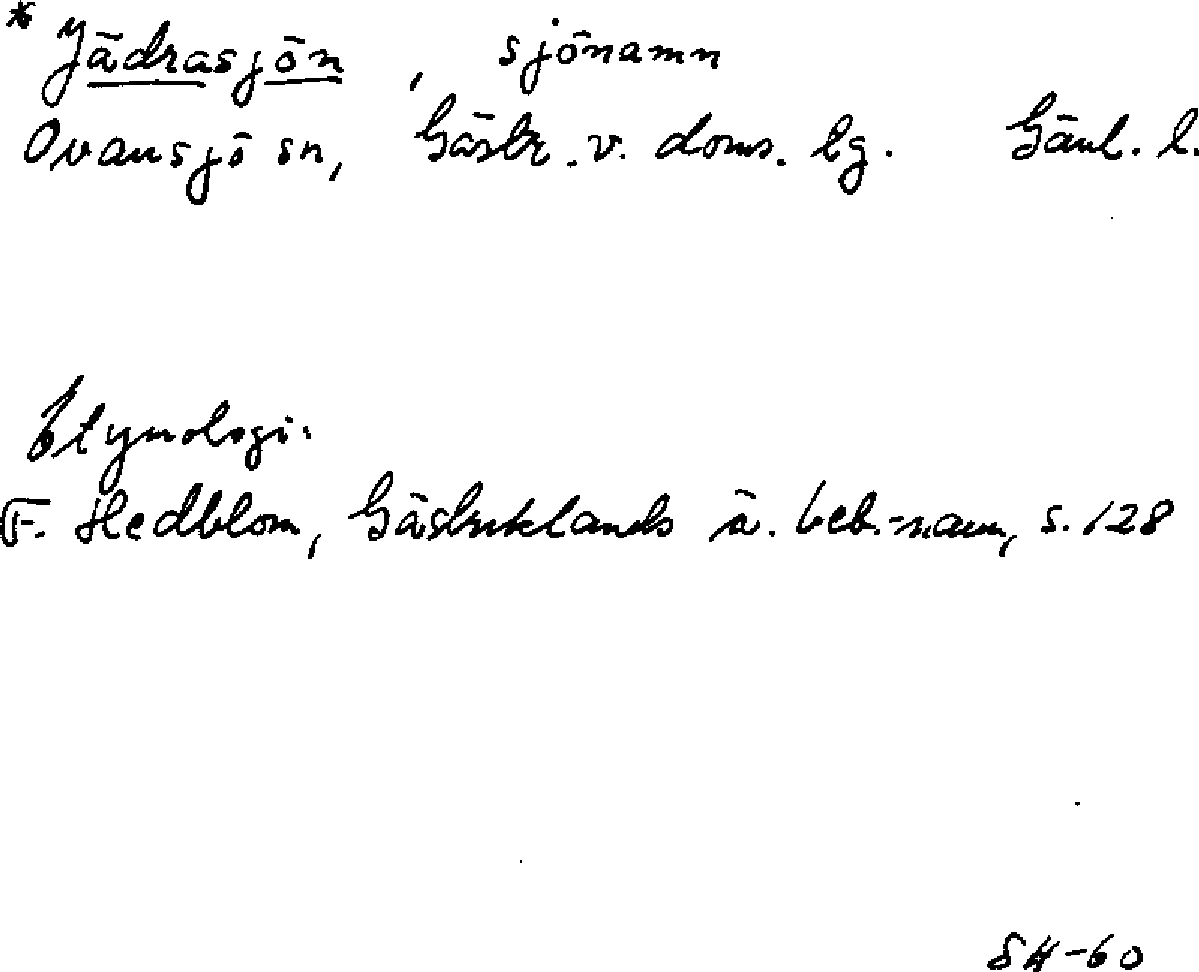 * Jädrasjön, sjönamn
Ovansjö sn, Gästr. v. doms. lg. Gävl. l.
Etymologi:
F. Hedblom, Gästriklands ä. beb.-namn, s. 128
SH-60